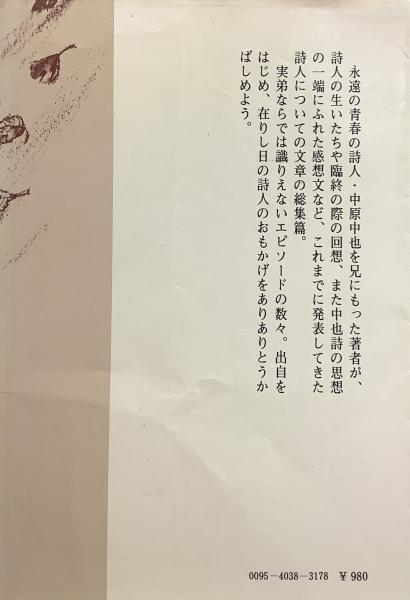 永遠の青春の詩人・中原中也を兄にもった著者が、
詩人の生いたちや臨終の際の回想、また中也詩の思想
の一端にふれた感想文など、これまでに発表してきた
詩人についての文章の総集篇。
実弟ならでは識りえないエピソードの数々。出自を
はじめ、在りし日の詩人のおもかげをありありとうか
ばしめよう。
0095-4038-3178 ¥980